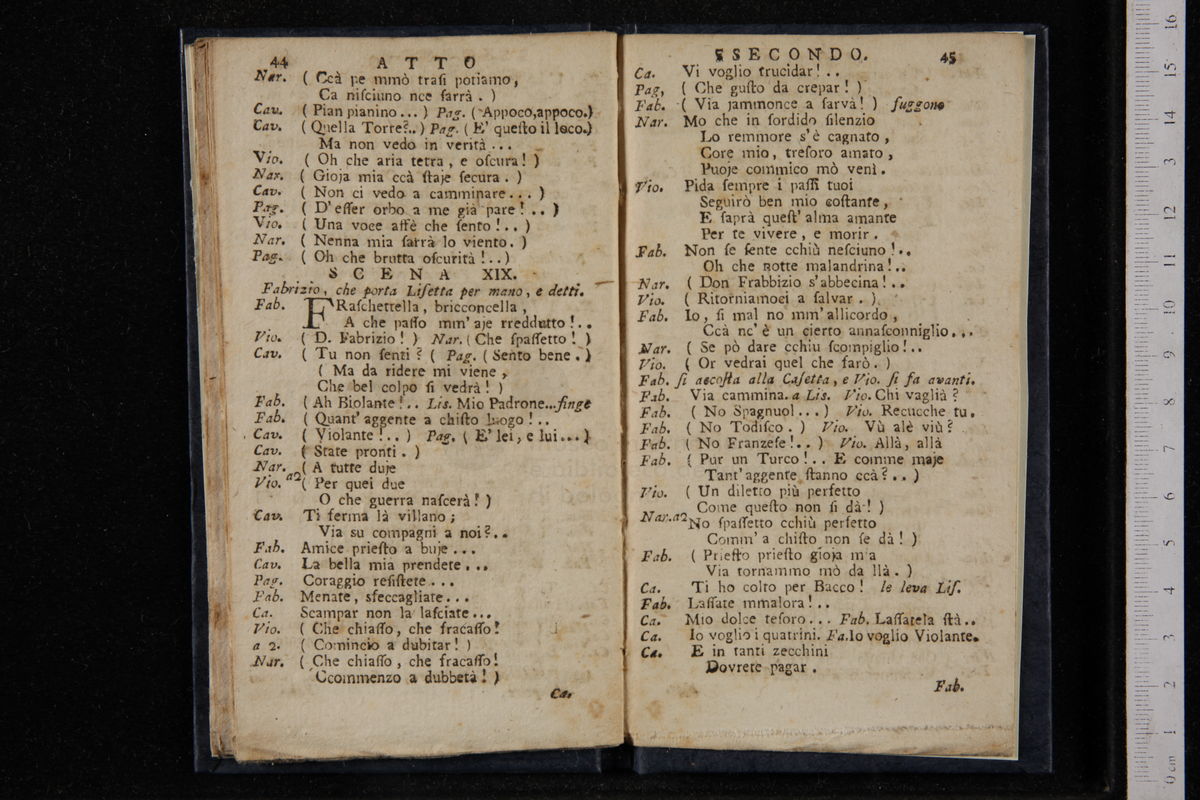 44 ATTO
Nar. ( Ccà pe mmò traſi potiamo,
Ca niſciuno nce ſarrà . )
Cav. ( Pian pianino ... ) Pag. ( Appoco,appoco.)
Cav. ( Quella Torre?.. ) Pag. ( E' queſto il loco.)
Ma non vedo in verità ...
Vio. ( Oh che aria tetra , e oſcura ! )
Nar. ( Gioja mia ccà ſtaje ſecura . )
Cav. ( Non ci vedo a camminare ... )
Pag. ( D' eſſer orbo a me già pare ! .. )
Vio. ( Una voce affè che ſento ! .. )
Nar. ( Nenna mia ſarrà lo viento. )
Pag. ( Oh che brutta oſcurità ! .. )
SCENA XIX.
Fabrizio , che porta Liſetta per mano , e detti.
Fab. FRaſchettella , bricconcella ,
A che paſſo mm' aje rreddutto ! ..
Vio. ( D. Fabrizio ! ) Nar. ( Che ſpaſſetto ! )
Cav. ( Tu non ſenti ? ( Pag. ( Sento bene . )
( Ma da ridere mi viene ,
Che bel colpo ſi vedrà ! )
Fab. ( Ah Biolante ! .. Lis. Mio Padrone...finge
Fab. ( Quant' aggente a chiſto luogo ! ..
Cav. ( Violante ! .. ) Pag. ( E' lei , e lui ... )
Cav. ( State pronti . )
Nar. ( A tutte duje
Vio. a2 ( Per quei due
O che guerra naſcerà ! )
Cav. Ti ferma là villano ;
Via su compagni a noi ? ..
Fab. Amice prieſto a buje ...
Cav. La bella mia prendete ...
Pag. Coraggio reſiſtete ...
Fab. Menate , sfeccagliate ...
Ca. Scampar non la laſciate ...
Vio. ( Che chiaſſo , che fracaſſo !
a 2. ( Comincio a dubitar ! )
Nar. ( Che chiaſſo , che fracaſſo !
Ccommenzo a dubbetà ! )
Ca.
SSECONDO. 45
Ca. Vi voglio trucidar ! ..
Pag, ( Che guſto da crepar ! )
Fab. ( Via jammonce a ſarvà ! ) fuggono
Nar. Mo che in ſordido ſilenzio
Lo remmore s' è cagnato ,
Core mio , treſoro amato ,
Puoje commico mò venì .
Vio. Pida ſempre i paſſi tuoi
Seguirò ben mio coſtante ,
E ſaprà queſt' alma amante
Per te vivere , e morir .
Fab. Non ſe ſente cchiù neſciuno ! ..
Oh che notte malandrina ! ..
Nar. ( Don Frabbizio s' abbecina ! ..
Vio. ( Ritorniamoci a ſalvar . )
Fab. Io , ſi mal no mm' allicordo ,
Ccà nc' è un cierto annaſconniglio ...
Nar. ( Se pò dare cchiu ſcompiglio ! ..
Vio. ( Or vedrai quel che farò . )
Fab. ſi accoſta alla Caſetta , e Vio. ſi fa avanti.
Fab. Via cammina. a Lis. Vio. Chi vaglià ?
Fab. ( No Spagnuol ... ) Vio. Recucche tu.
Fab. ( No Todiſco . ) Vio. Vù alè viù ?
Fab. ( No Franzeſe ! .. ) Vio. Allà , allà
Fab. ( Pur un Turco ! .. E comme maje
Tant' aggente ſtanno ccà ? .. )
Vio. ( Un diletto più perfetto
Come queſto non ſi dà ! )
Nar.a2 No ſpaſſetto cchiù perfetto
Comm' a chiſto non ſe dà ! )
Fab. ( Prieſto prieſto gioja m a
Via tornammo mò da llà . )
Ca. Ti ho colto per Bacco ! le leva Liſ.
Fab. Laſſate mmalora ! ..
Ca. Mio dolce teſoro ... Fab. Laſſatela ſtà ..
Ca. Io voglio i quatrini. Fa. Io voglio Violante.
Ca. E in tanti zecchini
Dovrete pagar .
Fab.
0 cm 1 2 3 4 5 6 7 8 9 10 11 12 13 14 15 16